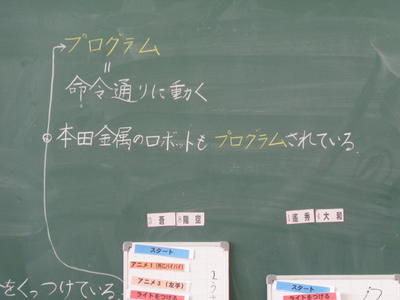 プログラム
命令通りに動く
本田金属のロボットもプログラムされている.
蒼 陽空
遙秀 大和
スタート
アニメ1(両こバイバイ)
アニメ3(左手)
ライトをつける
スタート
ライトをつける
をくっつけている.